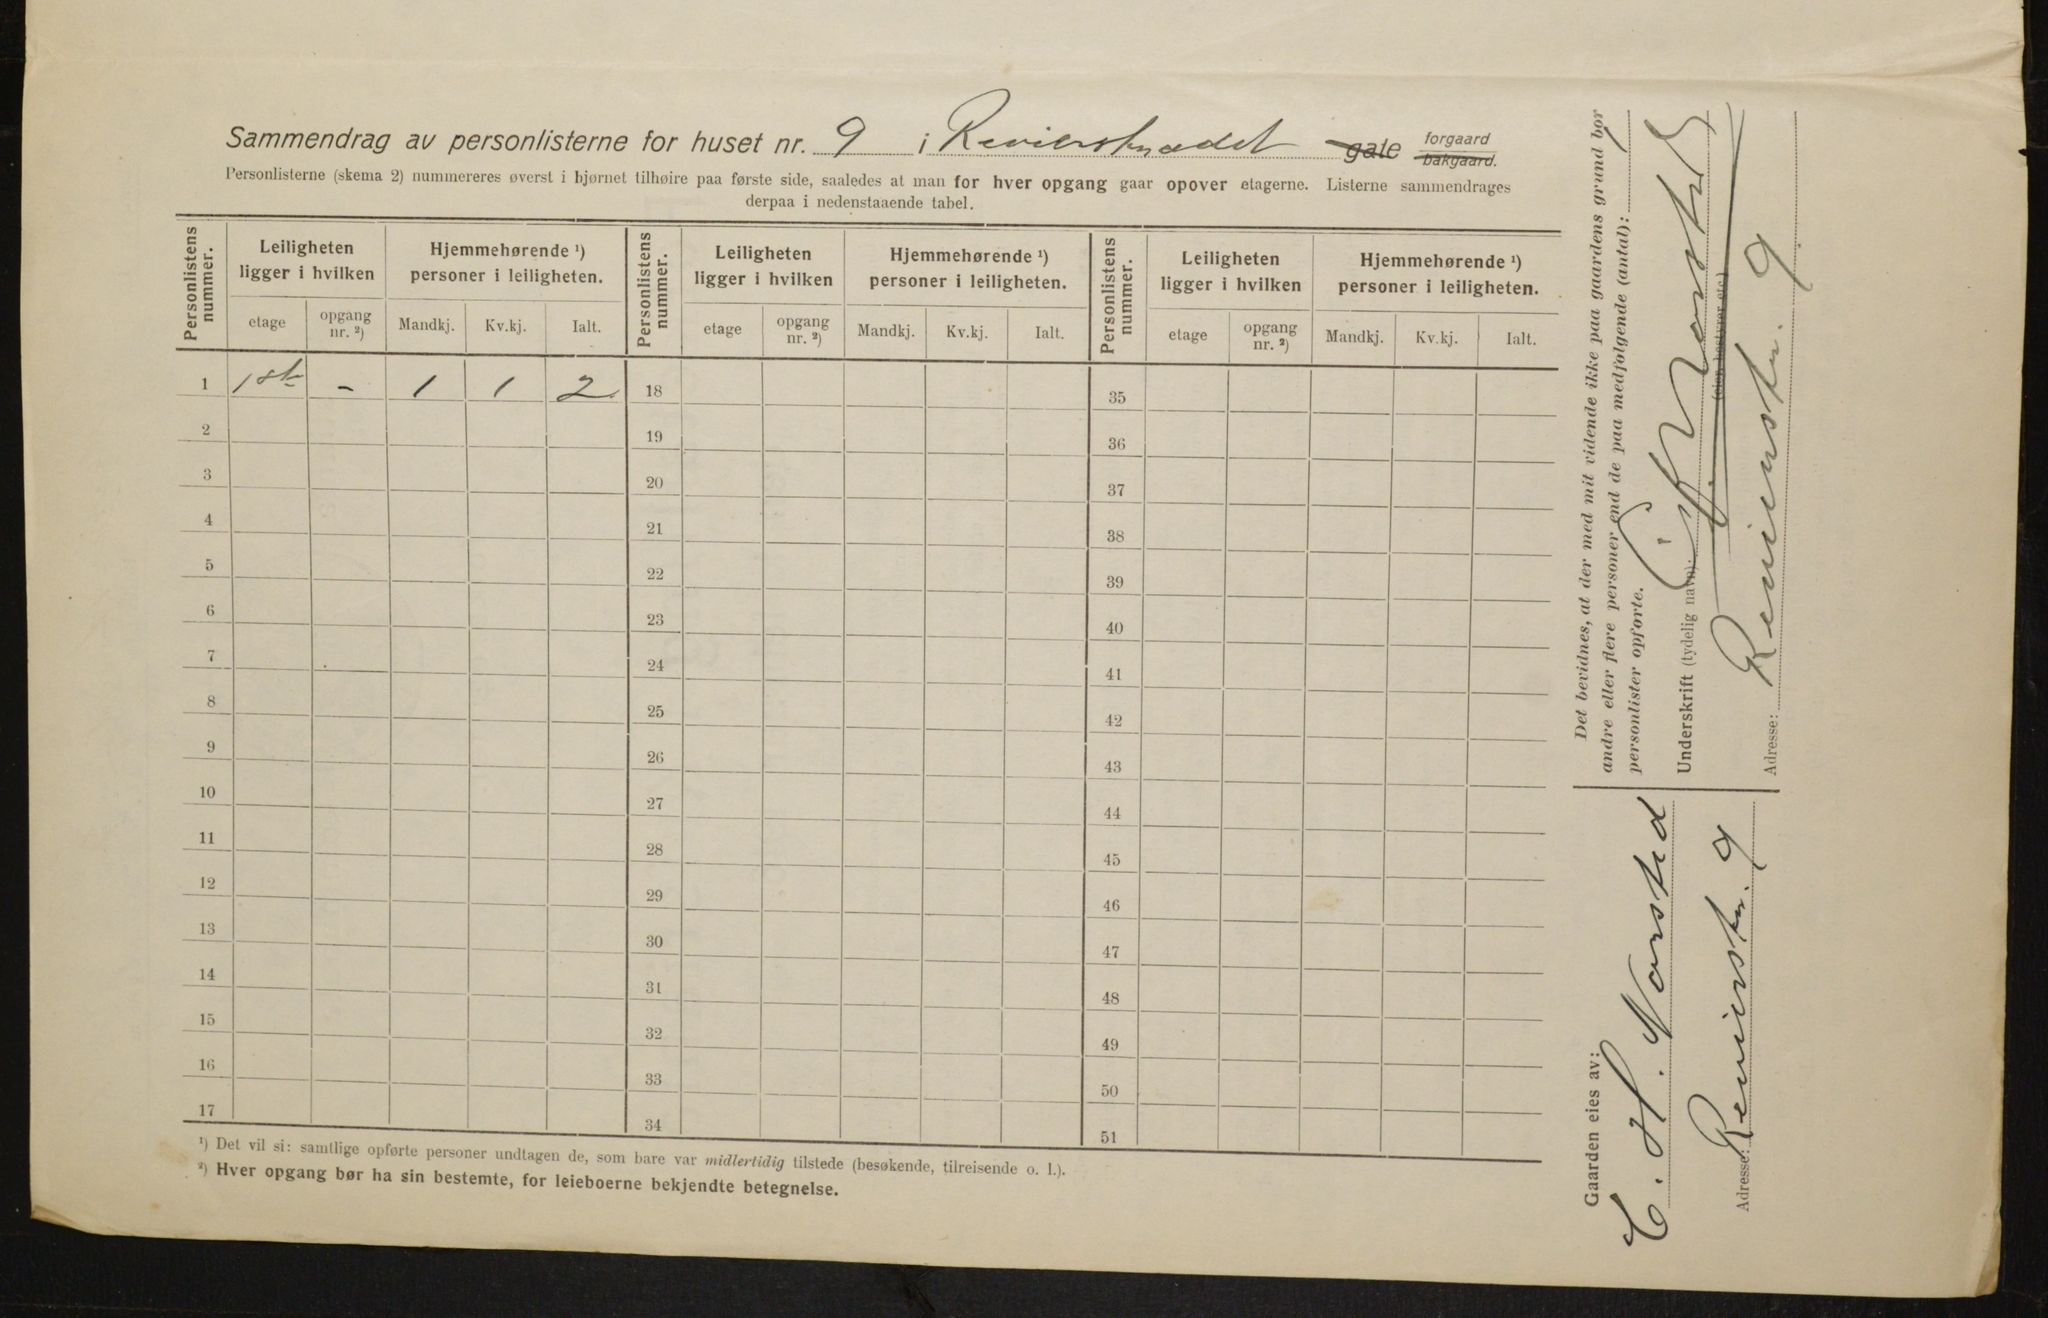 Sammendrag av personlisterne for huset nr. 9 i Revierstrædet gate forgaard bakgaard.
Personlisterne (skema 2) nummereres øverst i hjørnet tilhøire paa første side, saaledes at man for hver opgang gaar opover etagerne. Listerne sammendrages
derpaa i nedenstaaende tabel.
Personlistens nummer. Leiligheten ligger i hvilken Hjemmehørende ¹) personer i leiligheten. Personlistens nummer. Leiligheten ligger i hvilken Hjemmehørende ¹) personer i leiligheten. Personlistens nummer. Leiligheten ligger i hvilken Hjemmehørende ¹) personer i leiligheten.
etage opgang nr. ²) Mandkj. Kv.kj. Ialt. etage opgang nr. ²) Mandkj. Kv.kj. Ialt. etage opgang nr. ²) Mandkj. Kv.kj. Ialt.
1 1ste - 1 1 2 18 35
2 19 36
3 20 37
4 21 38
5 22 39
6 23 40
7 24 41
8 25 42
9 26 43
10 27 44
11 28 45
12 29 46
13 30 47
14 31 48
15 32 49
16 33 50
17 34 51
¹) Det vil si: samtlige opførte personer undtagen de, som bare var midlertidig tilstede (besøkende, tilreisende o. l.).
²) Hver opgang bør ha sin bestemte, for leieboerne bekjendte betegnelse.
Det bevidnes, at der med mit vidende ikke paa gaardens grund bor
andre eller flere personer end de paa medfølgende (antal): 1
personlister opførte.
Underskrift (tydelig navn): C. H. Norsted
(eier, bestyrer etc.)
Adresse: Revierstr. 9
Gaarden eies av:
C. H. Norsted
Adresse: Revierstr. 9